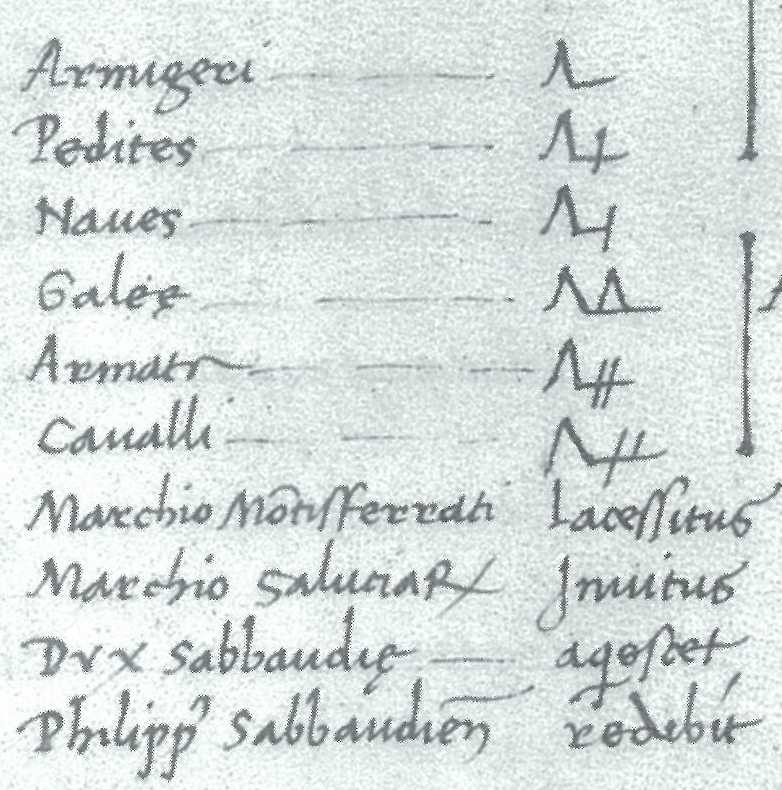 Armigeri
Pedites
Naues
Galeę
Armatr
Caualli
Marchio Mōtisferrati Lacessitus
Marchio Saluciaꝝ Jnuitus
Dvx Sabbaudię agoscet
Philippꝰ Sabbaudieñ redibit